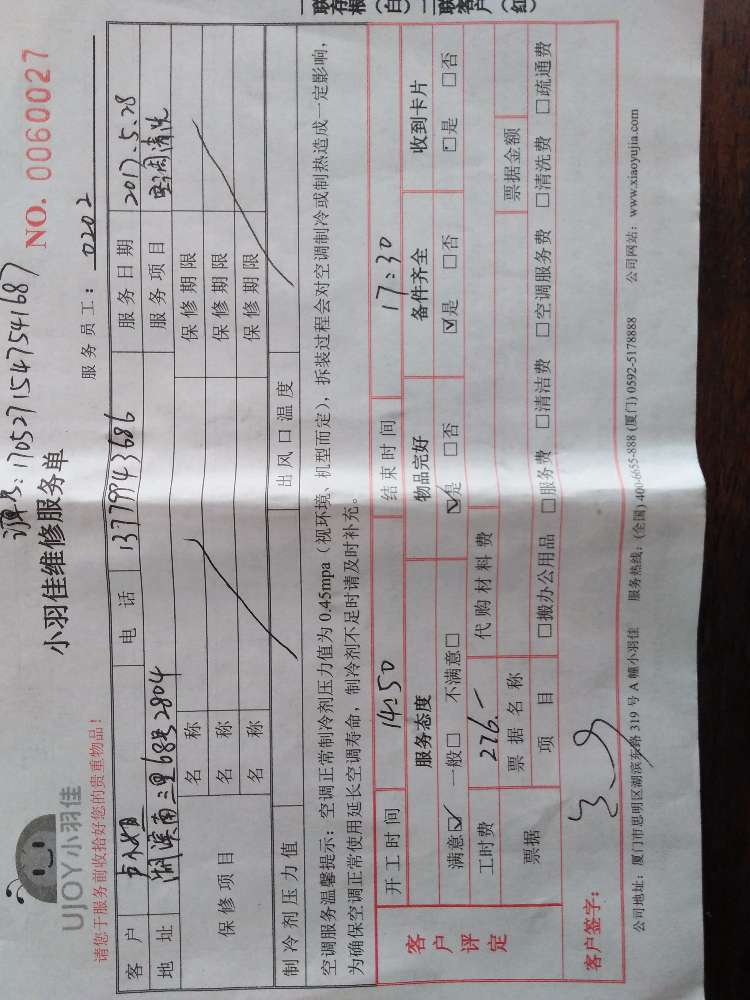 订单号：1705271547541687
小羽佳维修服务单
NO. 0060027
UJOY小羽佳
请您于服务前收拾好您的贵重物品！
服务员工： 0202
客户 电话 13779743686 服务日期 2017.5.28
地址 湖滨南三里68号2804 服务项目 空调清洗
保修项目 名称 保修期限
名称 保修期限
名称 保修期限
制冷剂压力值 出风口温度
空调服务温馨提示：空调正常制冷剂压力值为 0.45mpa（视环境、机型而定），拆装过程会对空调制冷或制热造成一定影响，
为确保空调正常使用延长空调寿命，制冷剂不足时请及时补充。
客户评定
开工时间 14:50 结束时间 17:30
服务态度 物品完好 备件齐全 收到卡片
满意☑ 一般□ 不满意□ ☑是 □否 ☑是 □否 □是 □否
工时费 276.- 代购材料费
票据 票据名称 票据金额
项目 □搬办公用品 □服务费 □清洁费 □空调服务费 □清洗费 □疏通费
客户签字：
公司地址：厦门市思明区湖滨东路 319 号 A 幢小羽佳 服务热线：(全国) 400-6655-888 (厦门) 0592-5178888 公司网站：www.xiaoyujia.com
一联存根（白）二联客户（红）